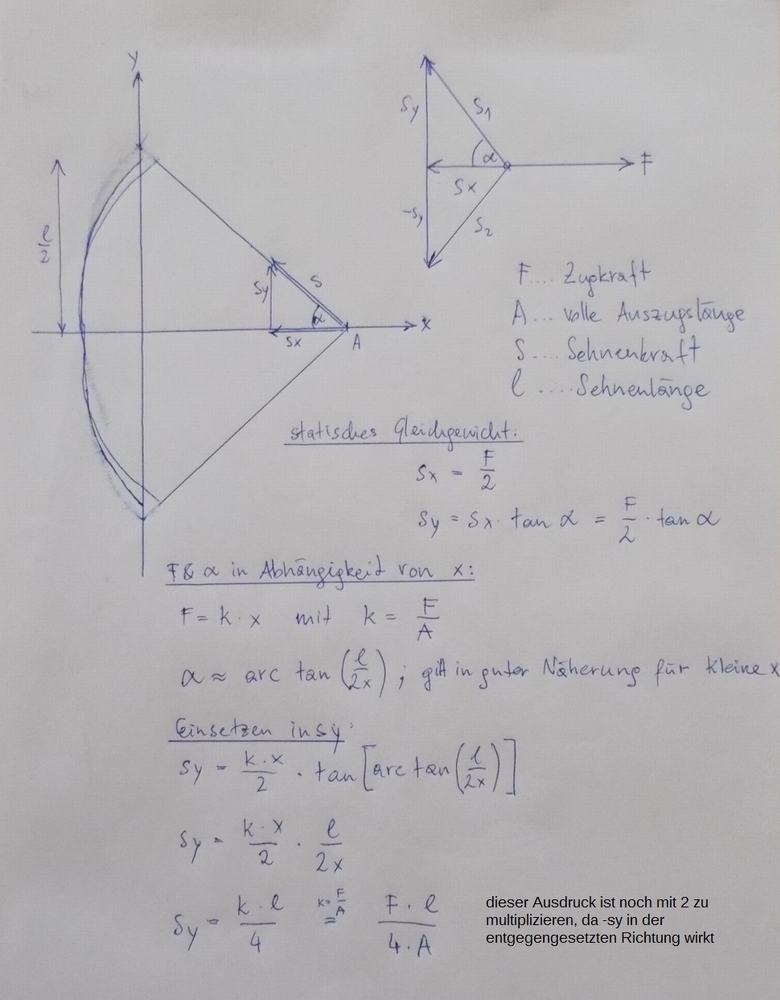 y
l/2
s
sy
α
sx
A
x
sy
s1
α
sx
F
-sy
s2
F .... Zugkraft
A ... volle Auszugslänge
S .... Sehnenkraft
l ..... Sehnenlänge
statisches Gleichgewicht:
sx = F/2
sy = sx · tan α = F/2 · tan α
F & α in Abhängigkeit von x:
F = k · x mit k = F/A
α ≈ arc tan (l/2x) ; gilt in guter Näherung für kleine x
Einsetzen in sy:
sy = k·x/2 · tan [arc tan (l/2x)]
sy = k·x/2 · l/2x
sy = k·l/4 k=F/A = F·l/4·A
dieser Ausdruck ist noch mit 2 zu
multiplizieren, da -sy in der
entgegengesetzten Richtung wirkt